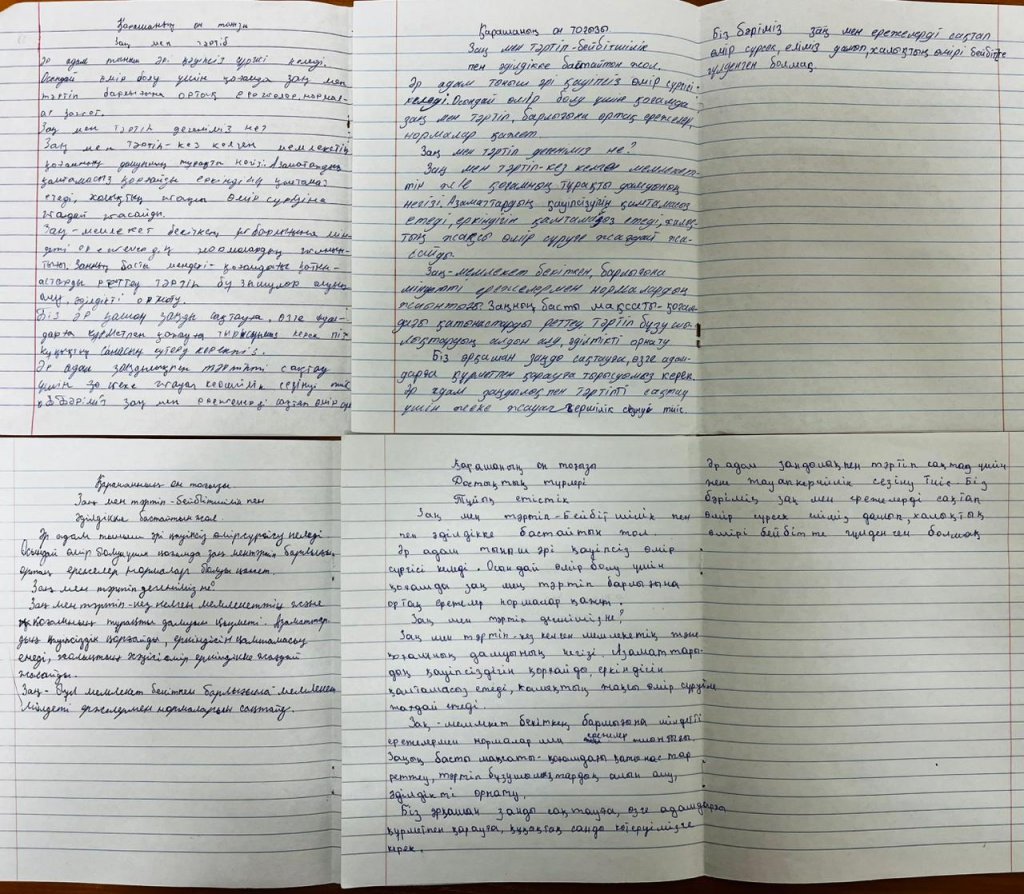 Қарашаның он тоғызы
Заң мен тәртіп
Әр адам тыныш әрі қауіпсіз өмір сүргісі келеді.
Осындай өмір болу үшін қоғамда заң мен
тәртіп барлығына ортақ ережелер, нормал-
ар қажет.
Заң мен тәртіп дегеніміз не?
Заң мен тәртіп-кез келген мемлекеттің
қоғамның дамуының тұрақты негізі. Азаматтардың
қамтамасыз қорғайды еркіндігін қамтамас
етеді, халықтың жақсы өмір сүруіне
жағдай жасайды.
Заң-мемлекет бекіткен барлығына мін-
детті нормалардың жиын-
тығы. Заңның басты міндеті-қоғамдағы қатын-
астарды реттеу тәртіп бұзушылар алдын
алу әділдікті орнату.
Біз әр қашан заңды сақтауға, өзге адам-
дарға құрметпен қарауға тырысуымыз керек
құқықтық сананы көтеру керекпіз.
Әр адам заңдылықпен тәртіпті сақтау
үшін жеке жауап кершілік сезінуі тиіс
Бәріміз заң мен ережелерді сақтап өмір сүр
Қарашаның он тоғызы
Заң мен тәртіп-бейбітшілік
пен әділдікке бастайтын жол.
Әр адам тыныш әрі қауіпсіз өмір сүргісі
келеді. Осындай өмір болу үшін қоғамда
заң мен тәртіп, барлығына ортақ ережелер,
нормалар қажет.
Заң мен тәртіп дегеніміз не?
Заң мен тәртіп-кез келген мемлекет-
тің және қоғамның тұрақты дамудың
негізі. Азаматтардың қауіпсіздігін қамтамасыз
етеді, еркіндігін қамтамасыз етеді, халық-
тың жақсы өмір сүруге жағдай жа-
сайды.
Заң-мемлекет бекіткен, барлығына
міндетті ережелер мен нормалардың
жиынтығы. Заңның басты мақсаты-қоғам-
дағы қатынастарды реттеу, тәртіп бұзушы-
лықтардың алдын алу, әділдікті орнату
Біз әрқашан заңды сақтауға, өзге адам-
дарға құрметпен қарауға тырысуымыз керек.
Әр адам заңдылықпен тәртіпті сақтау
үшін жеке жауап кершілік сезінуі тиіс.
Біз бәріміз заң мен ережелерді сақтап
өмір сүрсек, еліміз дамып, халықтың өмірі бейбітте
гүлденген болмақ.
Қарашаның он тоғызы
Заң мен тәртіп-бейбітшілік пен
әділдікке бастайтын жол
Әр адам тыныш әрі қауіпсіз өмір сүргісі келеді
Осындай өмір болу үшін қоғамда заң мен тәртіп барлығына
ортақ ережелер нормалар болуы қажет.
Заң мен тәртіп дегеніміз не?
Заң мен тәртіп-кез келген мемлекеттің және
қоғамның тұрақты дамуын Азаматтар-
дың қауіпсіздік қорғайды, еркіндігін қамтамасыз
етеді, халықтың жақсы өмір жағдай
жасайды.
Заң-бұл мемлекет бекіткен барлығына мемлекет
міндетті ережелермен нормаларын сақтайды.
Қарашаның он тоғызы
Достықтың түрлері
Тұйық етістік
Заң мен тәртіп-Бейбітшілік пен
пен әділдікке бастайтын жол.
Әр адам тыныш әрі қауіпсіз өмір
сүргісі келді. Осындай өмір болу үшін
қоғамда заң мен тәртіп барлығына
ортақ ережелер нормалар қажет.
Заң мен тәртіп дегеніміз не?
Заң мен тәртіп-кез келген мемлекетік және
қоғамның дамуының негізі. Азаматтары-
дың қауіпсіздігін қорғайды, еркіндігін
қамтамасыз етеді, халықтың жақсы өмір сүруіне
жағдай етеді.
Заң-мемлекет бекіткен барлығына міндетті
ережелермен нормалар мен ережелер жиынтығы.
Заңың басты мақсаты-қоғамдағы қатынастар
реттеу, тәртіп бұзушылықтардың алдын алу,
әділдікті орнату.
Біз әрқашан заңды сақтауға, өзге адамдарға
құрметпен қарауға, құқықтық санды көтердімізге
керек.
Әр адам заңдылықпен тәртіп сақтау үшін
жеке жауапкерчілік сезіну тиіс. Біз
бәріміз заң мен ережелерді сақтап
өмір сүрсек еліміз дамып, халықтың
өмірі бейбітте гүлденген болмақ